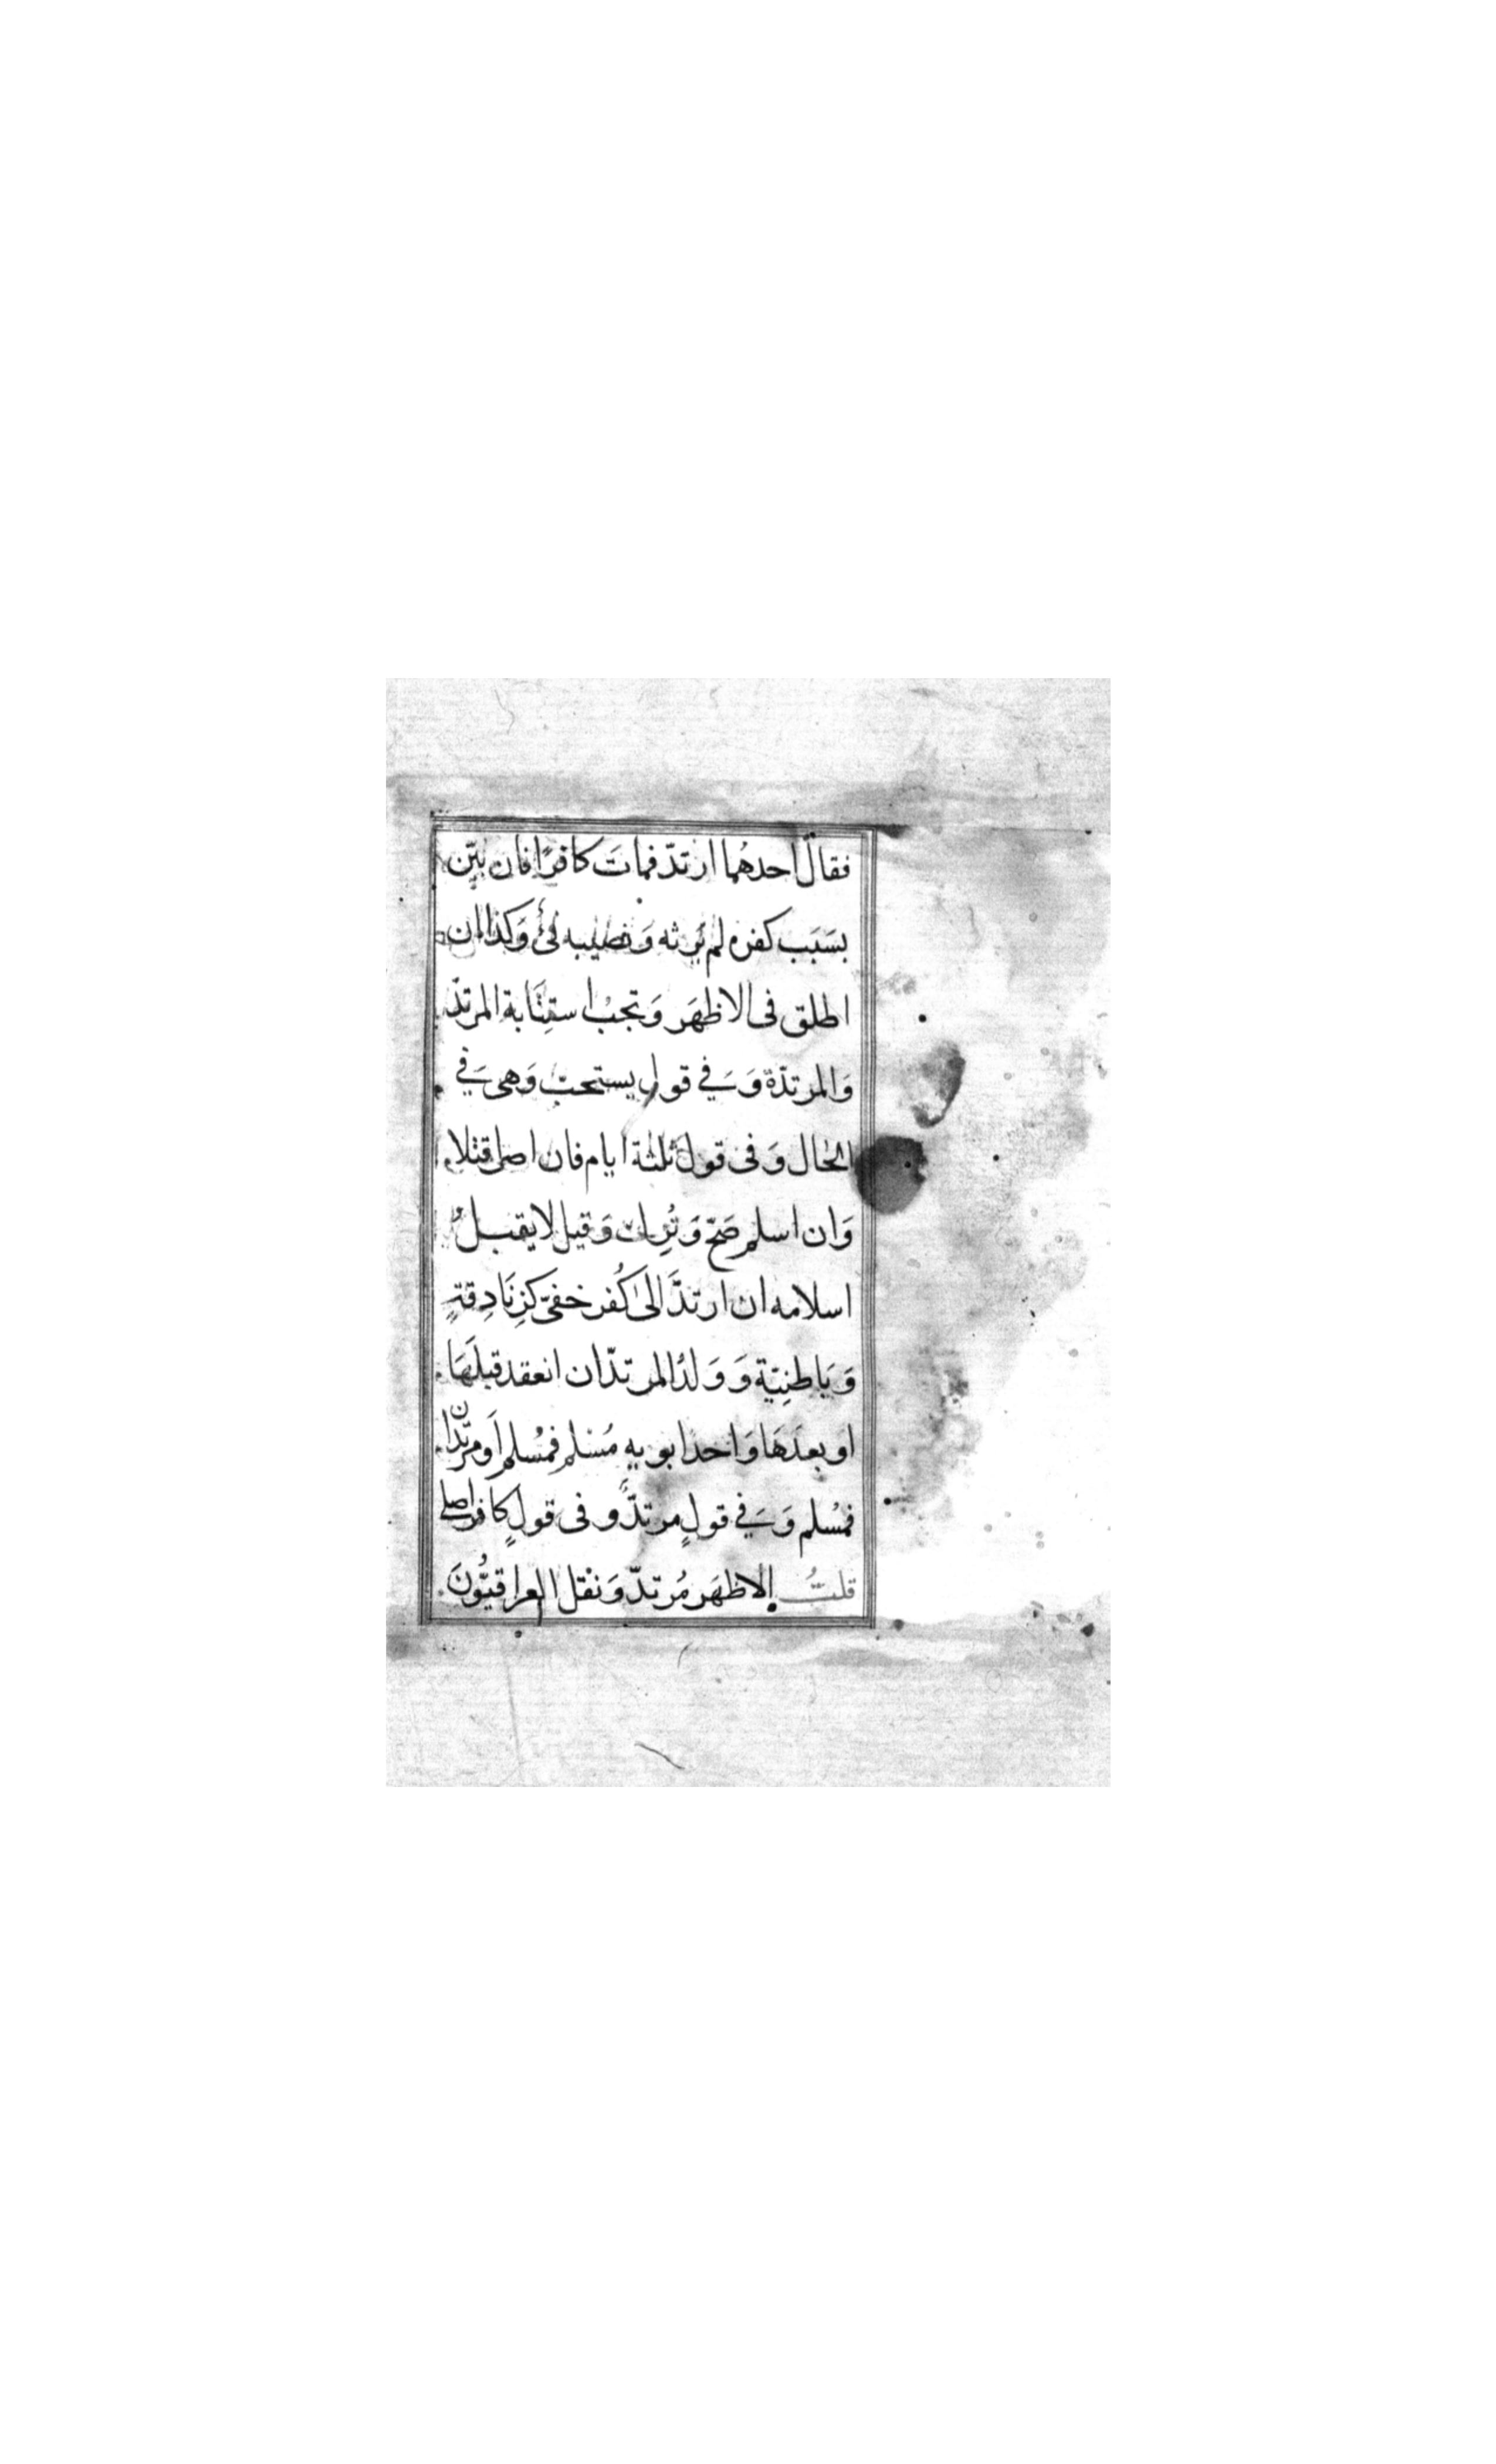 فقال احدهُما ارتدّ فماتَ كافرًا فان بيّن
بسَبَب كفره لم يَرِثه وَنصيبه فئ وَكذا ان
اطلق فى الاظهَر وَتجبُ استِتَابة المرتدّ
وَالمرتدّة وَفي قول يستحبّ وَهى في
الحال وَفى قول ثلثة ايام فان اصرا قتلا
وَان اسلم صَحّ وَتُرِك وَقيل لا يقبل
اسلامه ان ارتدَّ الىٰ كُفر خفىّ كزِنَادِقةٍ
وَبَاطنِيّة وَوَلدُ المرتدّ ان انعقد قبلَهَا
او بعدَهَا وَاحد ابويه مُسْلم فمُسْلم اَو مرتدّان
فمُسْلم وَفي قولٍ مرتدّ وفى قولٍ كافر اصلي
قلتُ الاظهَر مُرتدّ وَنقْل العراقيّونَ